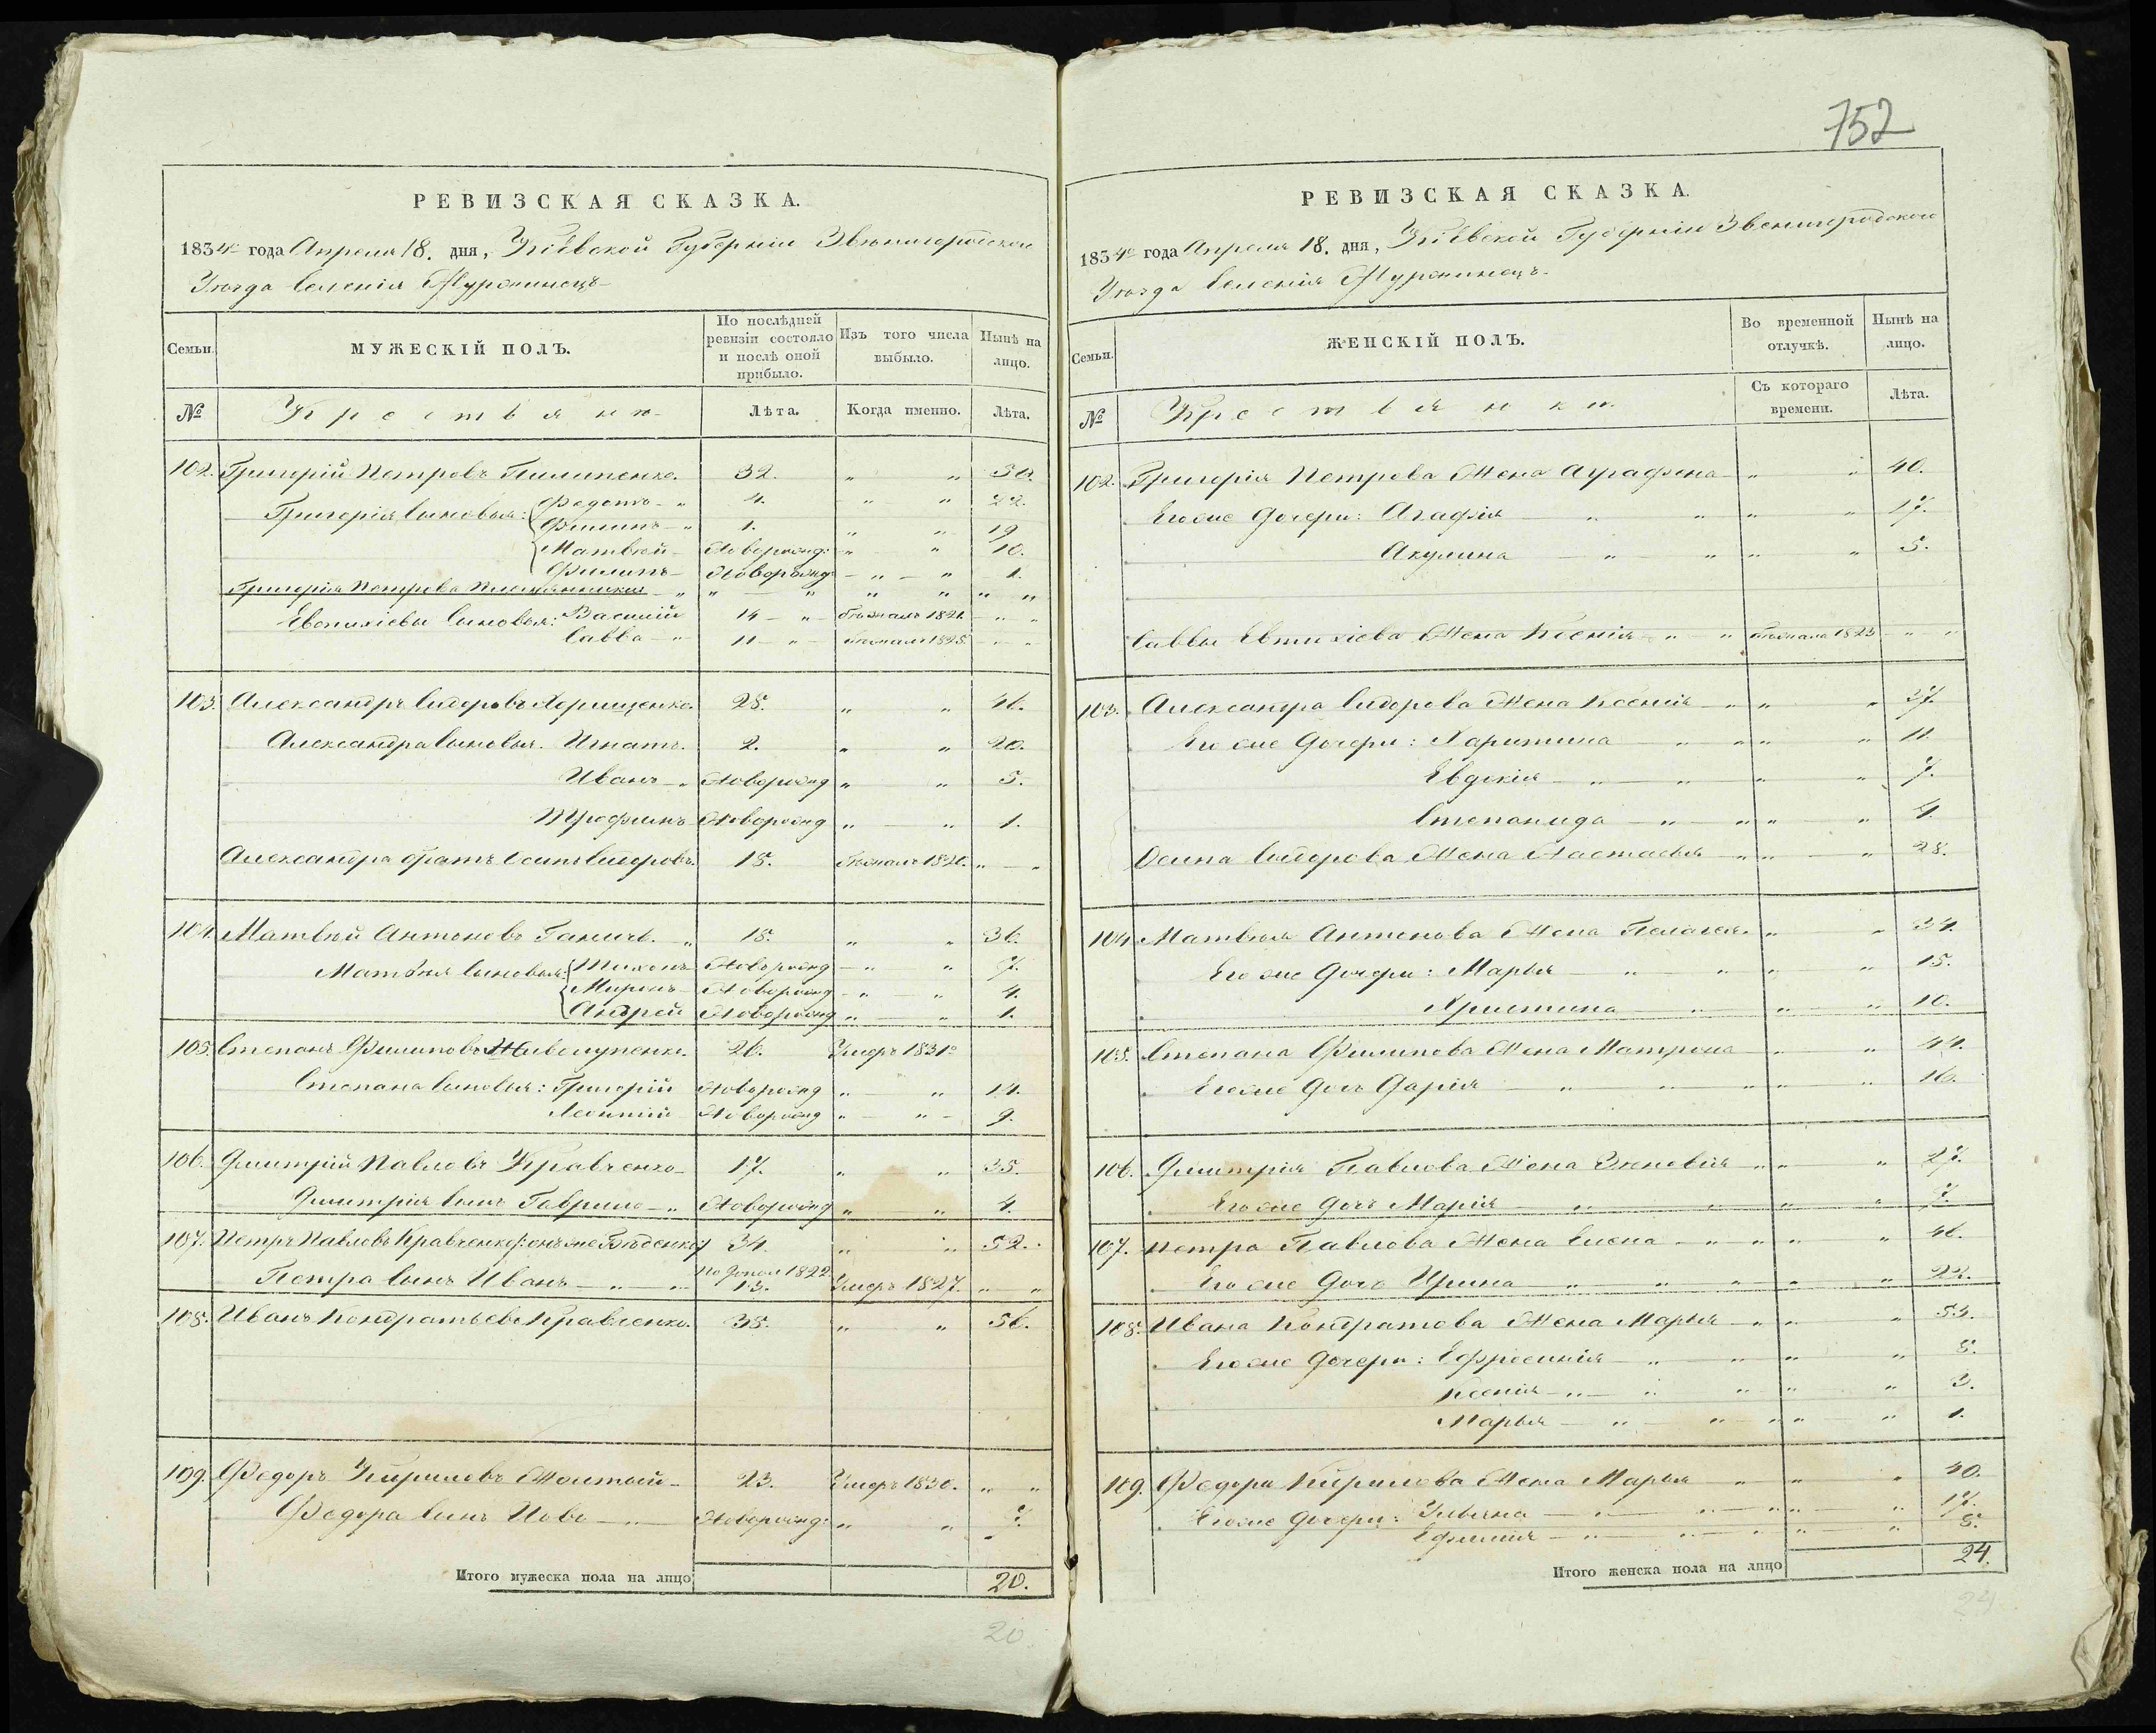 РЕВИЗСКАЯ СКАЗКА.
1834го года Апреля 18. дня, Кіевской Губерніи Звенигородского
Уѣзда Селенія
Семьи.
МУЖЕСКІЙ ПОЛЪ.
По послѣдней ревизіи состояло и послѣ оной прибыло.
Изъ того числа выбыло.
Нынѣ на лицо.
№
Крестьяне
Лѣта.
Когда именно.
Лѣта.
102. Григорій Петровъ Пилипенко. 32. " " 50.
Григорія Сыновья: Федотъ - " 4. " " 22.
Филипъ - " 1. " " 19
Матвѣй - Новорожд: " " 10.
Филипъ - Новорожд: " " 1.
Григорія Петрова Племянники " " " " " " "
Сыновья: Василій 14 " бѣжалъ 1821. " "
Савва " 11 " бѣжалъ 1825. " "
103. Александръ Сидоровъ 28. " " 46.
Александра Сыновья. Игнатъ. 2. " " 20.
Иванъ " Новорожд " " 5.
Трофимъ Новорожд " " 1.
Александра братъ Осипъ Сидоровъ. 15. бѣжалъ " "
104. Матвѣй Антоновъ " 18. " " 36.
Матвѣя Сыновья: Тихонъ Новорожд " " 7.
Миронъ Новорожд " " 4.
Андрей Новорожд " " 1.
105. Степанъ Филиповъ 26. Умеръ 1831го
Степана Сыновья: Григорій Новорожд " " 14.
Леонтій Новорожд " " 9.
106. Дмитрій Павловъ Кравченко 17. " " 35.
Дмитрія Сынъ Гаврило " Новорожд " " 4.
107. Петръ Павловъ Кравченко /: онъ же 34. " " 52.
Петра Сынъ Иванъ " " По допол 1822 13. Умеръ 1827. " "
108. Иванъ Кондратьевъ Кравченко. 38. " " 56.
109. Федоръ Кириловъ Жолтый 23. Умеръ 1830. " "
Федора Сынъ Иовъ " Новорожд: " " 7.
Итого мужеска пола на лицо 20.
20
752
РЕВИЗСКАЯ СКАЗКА.
1834го года Апреля 18. дня, Кіевской Губерніи Звенигородского
Уѣзда Селенія
Семьи.
ЖЕНСКІЙ ПОЛЪ.
Во временной отлучкѣ.
Нынѣ на лицо.
№
Крестьянки.
Съ котораго времени.
Лѣта.
102. Григорія Петрова Жена Аграфена " " 40.
Его же Дочери: Агафія " " " " 17.
Акулина " " " " 5.
Саввы Евтихіева Жена Ксенія " " бѣжала 1825 " "
103. Александра Сидорова Жена Ксенія " " " 37.
Его же Дочери: Харитина " " " " 11.
Евдокія " " " " 7.
Степанида " " " " 4.
Осипа Сидорова Жена Настасья " " " 28.
104. Матвѣя Антонова Жена Пелагея " " 34.
Его же Дочери: Марья " " " " 15.
Христина " " " 10.
105. Степана Филипова Жена Матрона " " 44.
Его же Дочь Дарія " " " " " 16.
106. Дмитрія Павлова Жена Зѣновія " " " 27.
Его же Дочь Марія " " " " 7.
107. Петра Павлова Жена Елена " " " " 46.
Его же Дочь Ирина " " " " " 22.
108. Ивана Кондратова Жена Марья " " " 53.
Его же Дочери: Ефросинія " " " " 8.
Ксенія " " " " " 3.
Марья " " " " " 1.
109. Федора Кирилова Жена Марья " " " 40.
Его же Дочери: Ульяна " " " " " 17.
Ефимія " " " " " 8.
Итого женска пола на лицо 24.
24